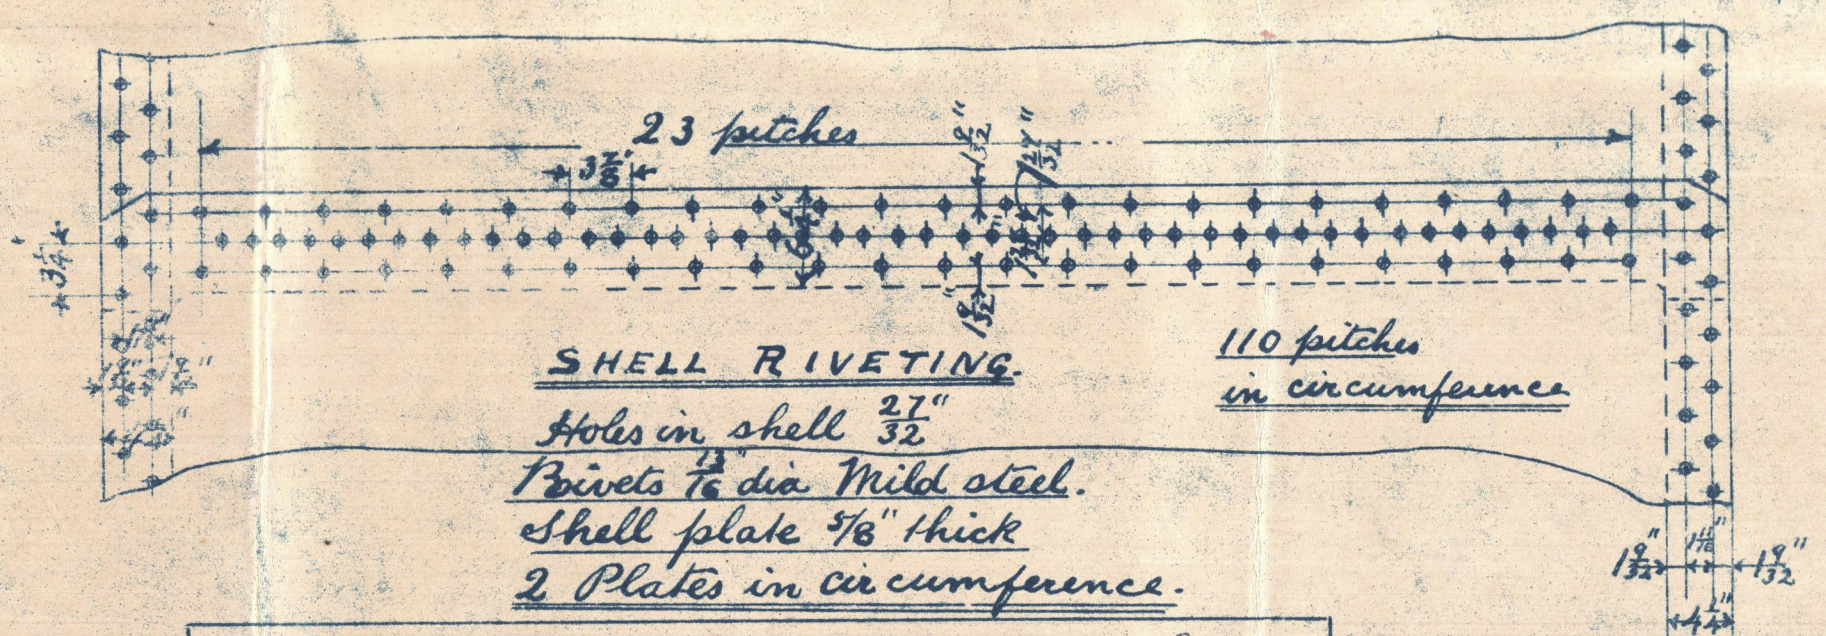 23 pitches
3 7/8"
1 9/32"
1 27/32"
3 1/4"
1 9/32"
SHELL RIVETING.
Holes in shell 27/32"
Rivets 13/16" dia Mild steel.
Shell plate 5/8" thick
2 Plates in circumference.
110 pitches
in circumference
1 9/32"
1 9/32"
4 1/4"